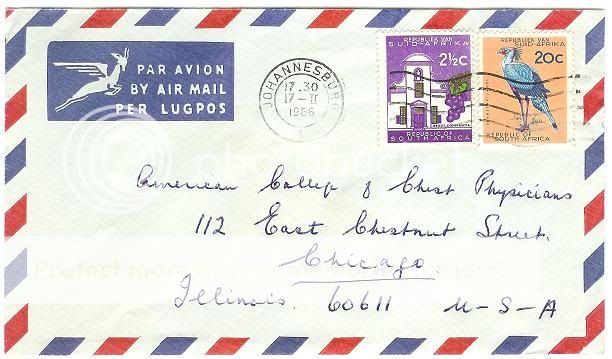 PAR AVION
BY AIR MAIL
PER LUGPOS
JOHANNESBURG
17.30
17-II
1966
1
REPUBLIEK VAN
SUID-AFRIKA
2½c
GROOT CONSTANTIA
REPUBLIC OF
SOUTH AFRICA
REPUBLIEK VAN
SUID-AFRIKA
20c
REPUBLIC OF
SOUTH AFRICA
American College of Chest Physicians
112 East Chestnut Street.
Chicago
Illinois. 60611 U-S-A
Protect more